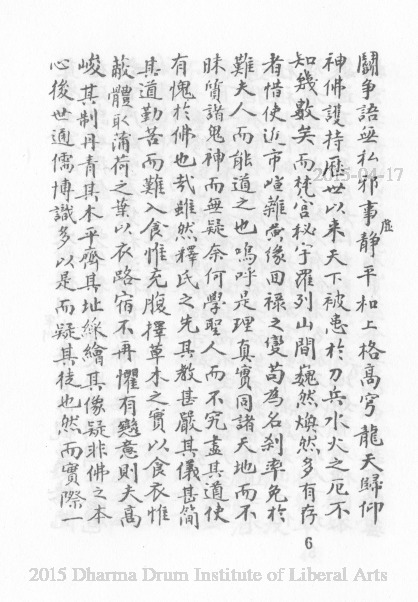 鬭爭語無私邪事靜平和上格高穹龍天歸仰
虛
神佛護持歷世以來天下被患於刀兵水火之厄不
知幾數矣而梵宮秘宇羅列山間巍然煥然多有存
者惜使近市喧雜黃像回祿之變苟為名剎率免於
難夫人而能道之也嗚呼是理真實同諸天地而不
昧質諸鬼神而無疑余何學聖人而不究盡其道使
有愧於佛也哉雖然釋氏之先其教甚嚴其儀甚簡
其道勤苦而難入食惟充腹擇草木之實以食衣惟
蔽體取蒲荷之葉以衣路宿不再懼有變意則夫高
峻其制丹青其木平齊其址綵繪其像疑非佛之本
心後世通儒博識多以是而疑其徒也然而實際一
6
2015-04-17
2015 Dharma Drum Institute of Liberal Arts